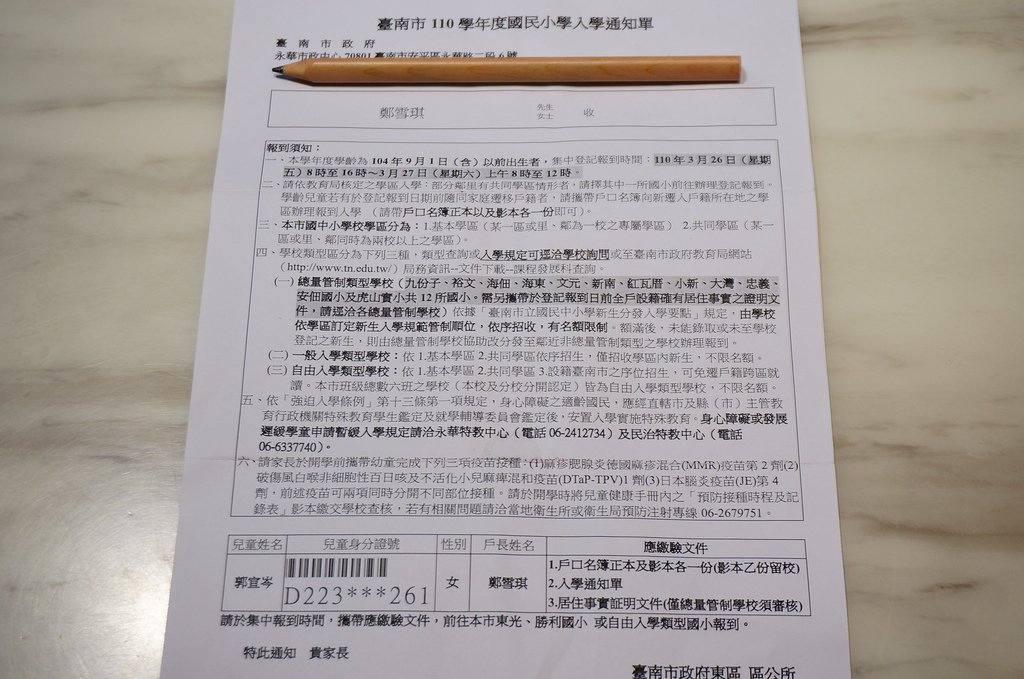 臺南市 110 學年度國民小學入學通知單
臺南市政府
永華市政中心 70801 臺南市安平區永華路二段 6 號
鄭雪琪 先生 女士 收
報到須知：
一、本學年度學齡為 104 年 9 月 1 日（含）以前出生者，集中登記報到時間：110 年 3 月 26 日（星期
五）8 時至 16 時～3 月 27 日（星期六）上午 8 時至 12 時。
二、請依教育局核定之學區入學；部分鄰里有共同學區情形者，請擇其中一所國小前往辦理登記報到。
學齡兒童若有於登記報到日期前隨同家庭遷移戶籍者，請攜帶戶口名簿向新遷入戶籍所在地之學
區辦理報到入學 （請帶戶口名簿正本以及影本各一份即可）。
三、本市國中小學校學區分為：1.基本學區（某一區或里、鄰為一校之專屬學區） 2.共同學區（某一
區或里、鄰同時為兩校以上之學區）。
四、學校類型區分為下列三種，類型查詢或入學規定可逕洽學校詢問或至臺南市政府教育局網站
（http://www.tn.edu.tw/）局務資訊--文件下載--課程發展科查詢。
(一) 總量管制類型學校（九份子、裕文、海佃、海東、文元、新南、紅瓦厝、小新、大灣、忠義、
安佃國小及虎山實小共 12 所國小。需另攜帶於登記報到日前全戶設籍確有居住事實之證明文
件，請逕洽各總量管制學校）依據「臺南市立國民中小學新生分發入學要點」規定，由學校
依學區訂定新生入學規範管制順位，依序招收，有名額限制。額滿後，未能錄取或未至學校
登記之新生，則由總量管制學校協助改分發至鄰近非總量管制類型之學校辦理報到。
(二) 一般入學類型學校：依 1.基本學區 2.共同學區依序招生，僅招收學區內新生，不限名額。
(三) 自由入學類型學校：依 1.基本學區 2.共同學區 3.設籍臺南市之序位招生，可免遷戶籍跨區就
讀。本市班級總數六班之學校（本校及分校分開認定）皆為自由入學類型學校，不限名額。
五、依「強迫入學條例」第十三條第一項規定，身心障礙之適齡國民，應經直轄市及縣（市）主管教
育行政機關特殊教育學生鑑定及就學輔導委員會鑑定後，安置入學實施特殊教育。身心障礙或發展
遲緩學童申請暫緩入學規定請洽永華特教中心（電話 06-2412734）及民治特教中心（電話
06-6337740）。
六、請家長於開學前攜帶幼童完成下列三項疫苗接種：(1)麻疹腮腺炎德國麻疹混合(MMR)疫苗第 2 劑(2)
破傷風白喉非細胞性百日咳及不活化小兒麻痺混和疫苗(DTaP-TPV)1 劑(3)日本腦炎疫苗(JE)第 4
劑，前述疫苗可兩項同時分開不同部位接種。請於開學時將兒童健康手冊內之「預防接種時程及記
錄表」影本繳交學校查核，若有相關問題請洽當地衛生所或衛生局預防注射專線 06-2679751。
兒童姓名 兒童身分證號 性別 戶長姓名 應繳驗文件
郭宣岑 D223***261 女 鄭雪琪
1.戶口名簿正本及影本各一份(影本乙份留校)
2.入學通知單
3.居住事實証明文件(僅總量管制學校須審核)
請於集中報到時間，攜帶應繳驗文件，前往本市東光、勝利國小 或自由入學類型國小報到。
特此通知 貴家長
臺南市政府東區 區公所